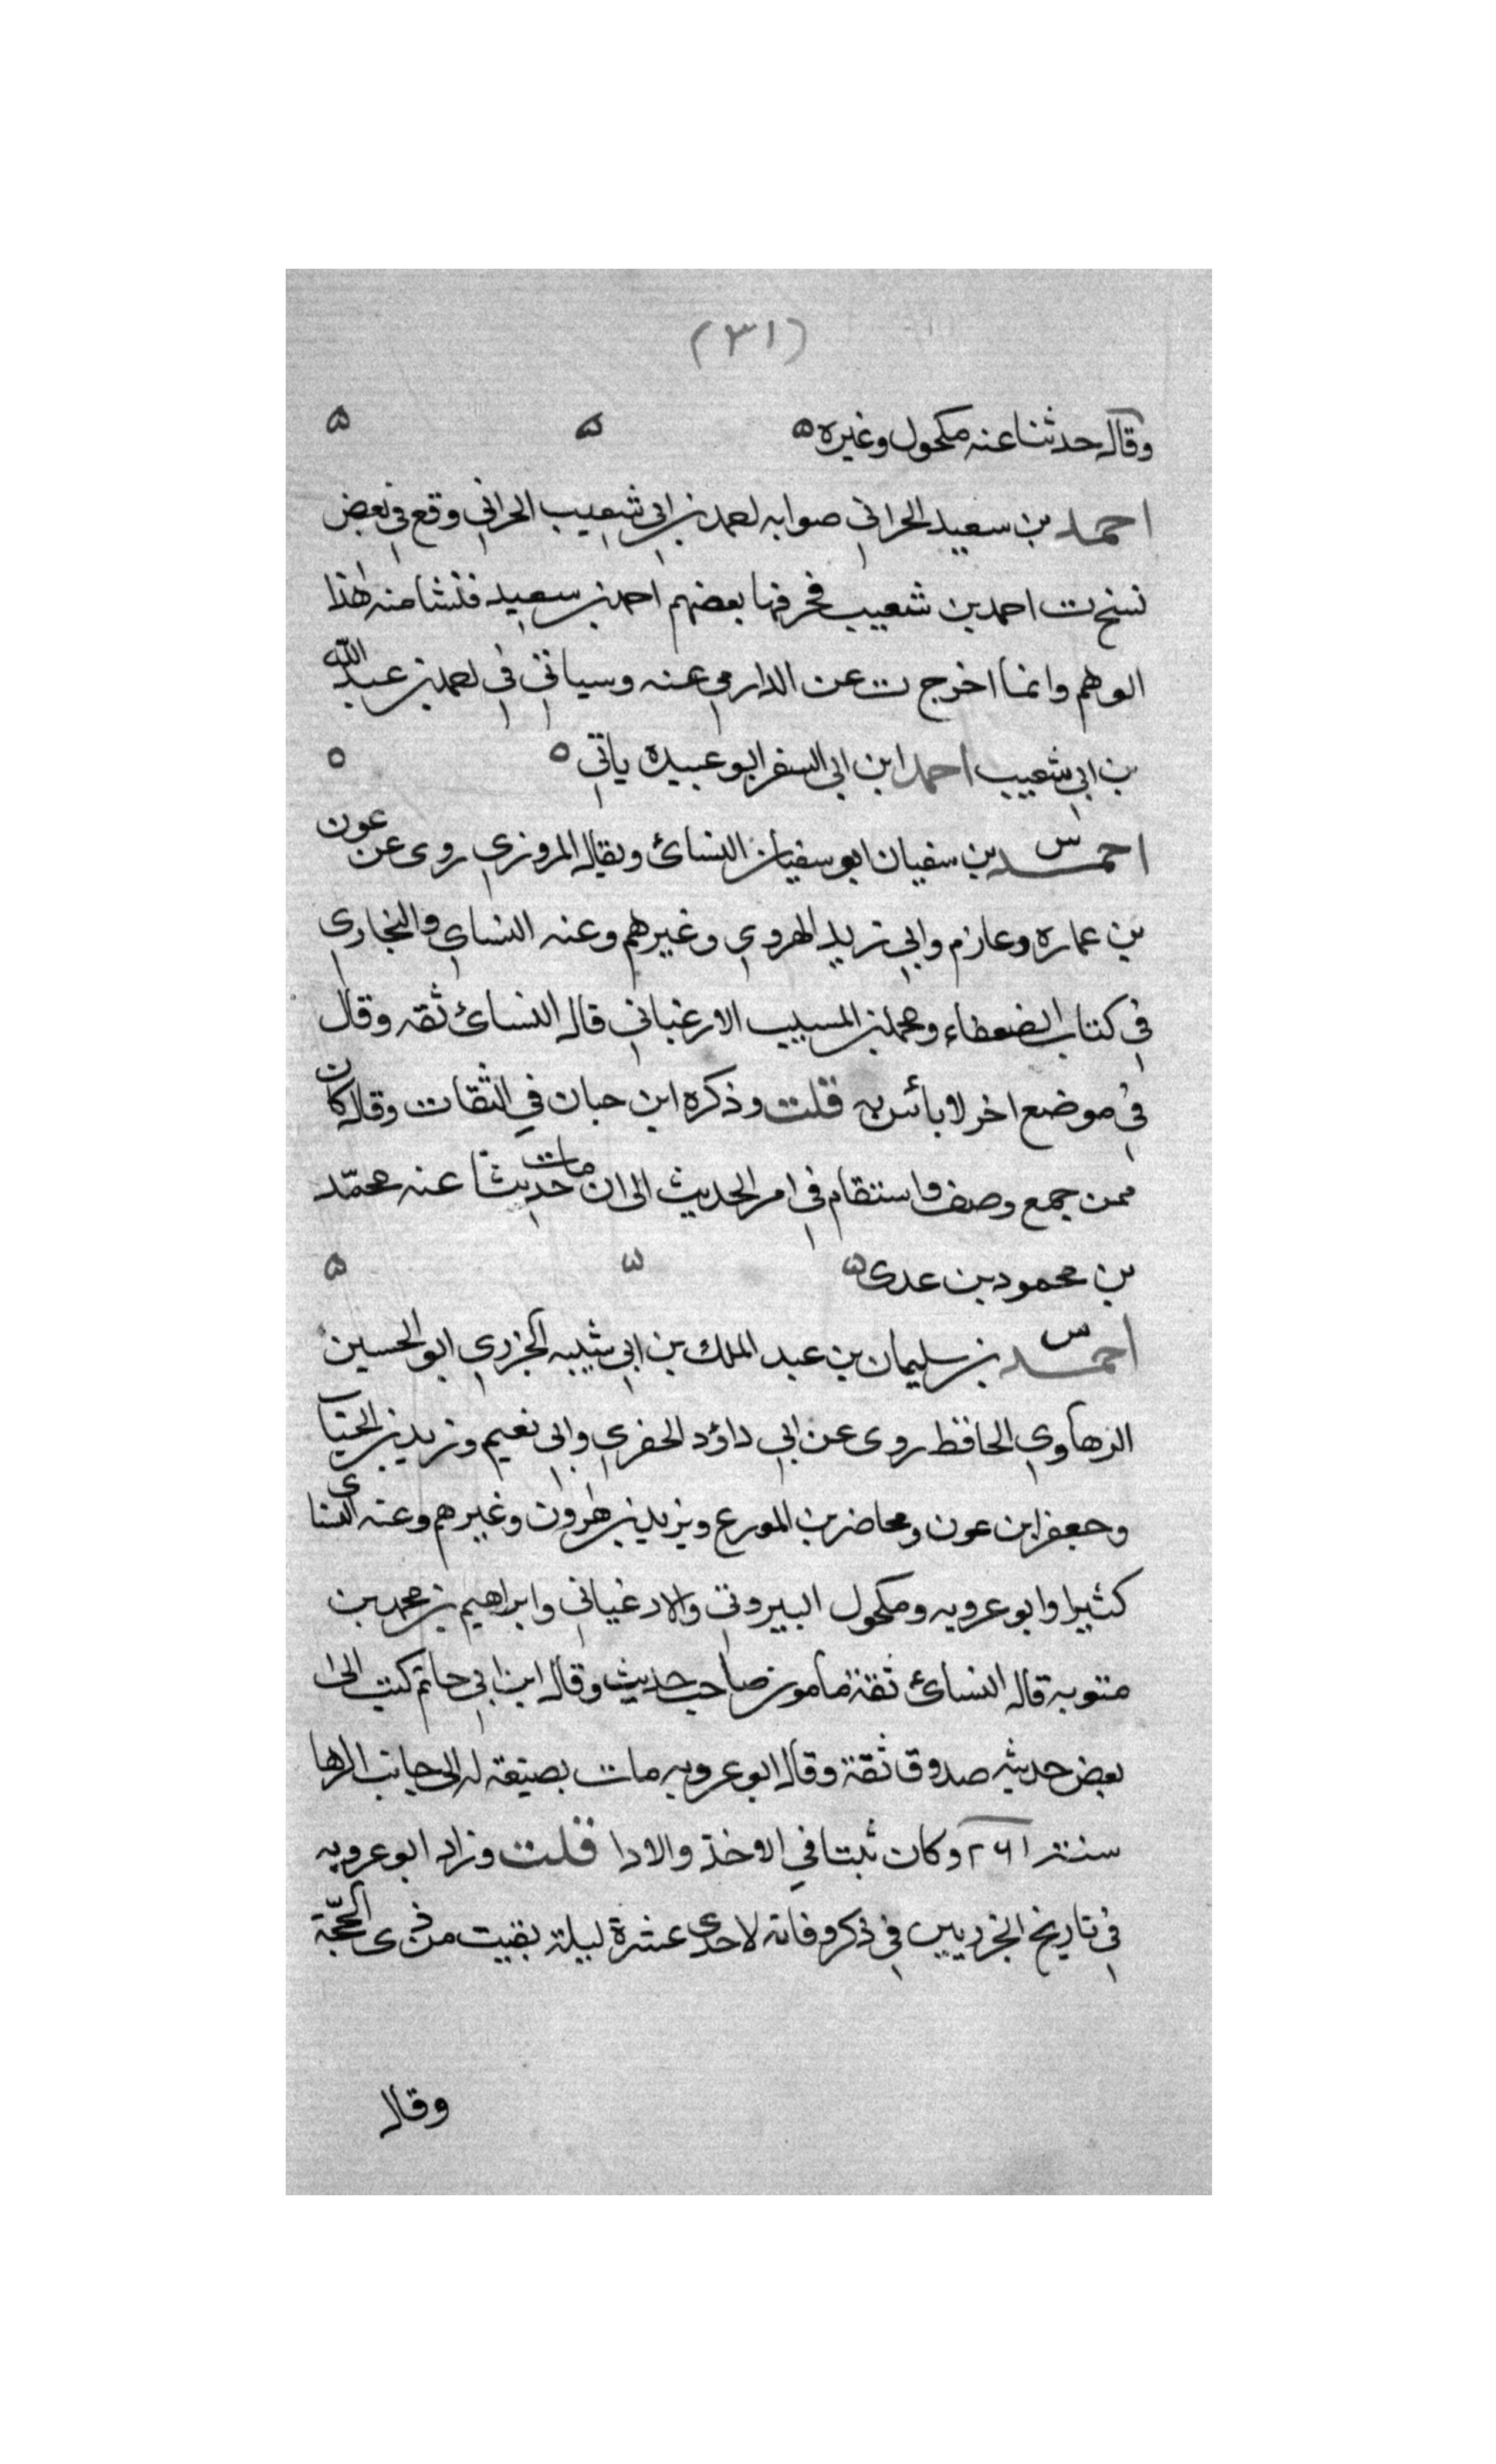 (٣١)
وقال حدثنا عنه مكحول وغيره ٥ ٥ ٥
احمد بن سعيد الحراني صوابه احمد بن ابي شعيب الحراني وقع في بعض
نسخ ت احمد بن شعيب فحرفها بعضهم احمد بن سعيد فنشا منه هذا
الوهم وانما اخرج ت عن الدارمي عنه وسياتي في احمد بن عبد الله
بن ابي شعيب احمد ابن ابي السفر ابو عبيدة ياتي ٥ ٥
س احمد بن سفيان ابو سفيان النسائ ويقال المروزي روى عن عون
بن عماره وعازم وابي زيد الهروي وغيرهم وعنه النساي والبخاري
في كتاب الضعفاء ومحمد بن المسيب الارغياني قال النسائ ثقه وقال
في موضع اخر لا بائس به قلت وذكره ابن حبان في الثقات وقال كان
ممن جمع وصنف واستقام في امر الحديث الى ان مات حديثا عنه محمد
بن محمود بن عدى ٥ ٥ ٥
س احمد بن سليمان بن عبد الملك بن ابي شيبه الجزري ابو الحسين
الرهاوي الحافظ روى عن ابي داؤد الحفري وابي نعيم وزيد بن الحباب
وجعفر ابن عون ومحاضر بن المورع ويزيد بن هرون وغيرهم وعنه النساى
كثيرا وابو عروبه ومكحول البيروتي والارغياني وابراهيم بن محمد بن
متويه قال النسائ ثقة مامون صاحب حديث وقال ابن ابي حاتم كتب الى
بعض حديثه صدوق ثقة وقال ابو عروبه مات بضيعة له الى جانب الرها
سنة ٢٦١ وكان ثبتا في الاخذ والادا قلت وزاد ابو عروبه
في تاريخ الجزريين في ذكر وفاته لاحدى عشرة ليلة بقيت من ذى الحجة
وقال